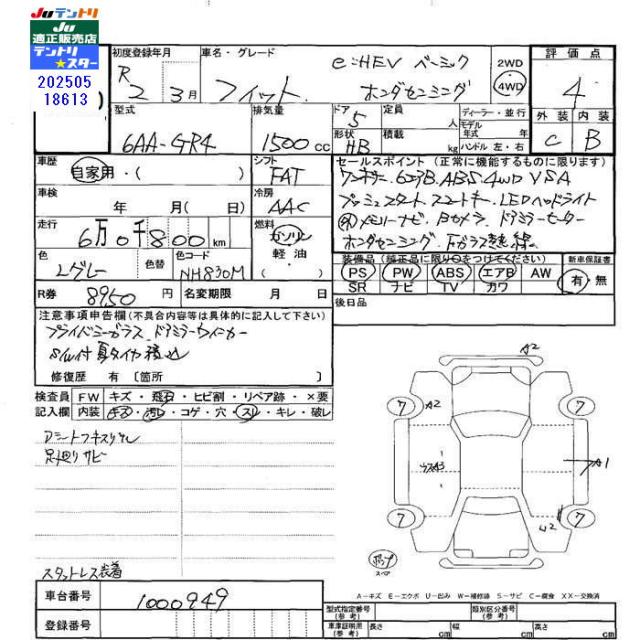 JUテントリ
JU
適正販売店
テントリ
★スター
202505
18613
初度登録年月
R 2 年 3 月
車名・グレード
フィット
e:HEV ベーシック
ホンダセンシング
2WD
・
4WD
評価点
4
外装 内装
C B
型式
6AA-GR4
排気量
1500 cc
ドア
5
形状
HB
定員
人
積載
kg
ディーラー・並行
モデル
年式 年
ハンドル 左・右
車歴
自家用・( )
シフト
FAT
車検
年 月( 日)
冷房
AAC
走行
6万0千800 km
燃料
ガソリン
軽油
・
色
Lグレー
色替
色コード
NH830M
セールスポイント(正常に機能するものに限ります)
ワンオーナー.6エアB.ABS.4WD VSA
プッシュスタート スマートキー.LEDヘッドライト
メモリーナビ.Bカメラ.ドアミラーヒーター
ホンダセンシング.Fガラス熱線
装備品(純正品に限り○をつけてください)
PS PW ABS エアB AW
SR ナビ TV カワ
新車保証書
有・無
R券
8950 円
名変期限 月 日
後日品
注意事項申告欄(不具合内容等は具体的に記入して下さい)
プライバシーガラス.ドアミラーウィンカー
S/W付 夏タイヤ積込
修復歴 有 〔箇所 〕
検査員
記入欄
FW キズ・飛石・ヒビ割・リペア跡・×要
内装 キズ・汚レ・コゲ・穴・スレ・キレ・破レ
足廻りサビ
スタットレス装着
A2
7
A2
7
A1
7
7
スペア
A-キズ E-エクボ U-凹み W-補修跡 S-サビ C-腐食 XX-交換済
車台番号
1000949
登録番号
型式指定番号
(参考)
類別区分番号
(参考)
車庫証明用
(参考)
長さ cm
幅 cm
高さ cm